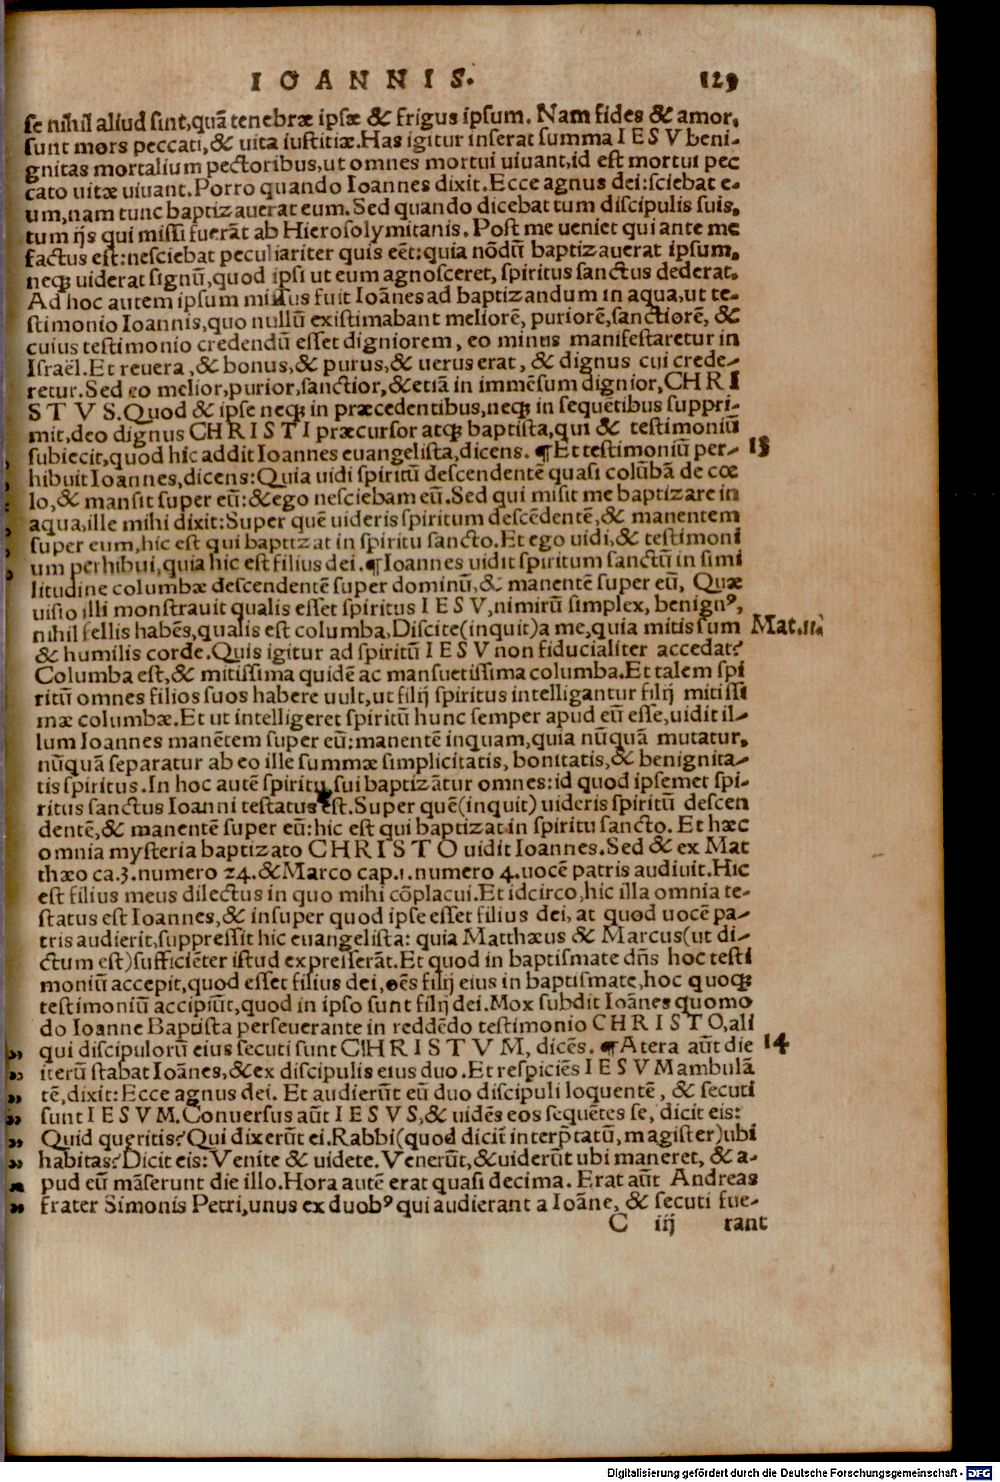 IOANNIS. 129
se nihil aliud sint,quã tenebræ ipsæ & frigus ipsum. Nam fides & amor,
sunt mors peccati,& uita iustitiæ.Has igitur inserat summa IESV beni-
gnitas mortalium pectoribus,ut omnes mortui uiuant,id est mortui pec
cato uitæ uiuant.Porro quando Ioannes dixit.Ecce agnus dei:sciebat e-
um,nam tunc baptizauerat eum.Sed quando dicebat tum discipulis suis,
tum ijs qui missi fuerãt ab Hierosolymitanis. Post me ueniet qui ante me
factus est:nesciebat peculiariter quis eẽt:quia nõdũ baptizauerat ipsum,
neq; uiderat signũ,quod ipsi ut eum agnosceret, spiritus sanctus dederat.
Ad hoc autem ipsum missus fuit Ioãnes ad baptizandum in aqua,ut te-
stimonio Ioannis,quo nullũ existimabant meliorẽ, puriorẽ,sanctiorẽ, &
cuius testimonio credendũ esset digniorem, eo minus manifestaretur in
Israël.Et reuera,& bonus,& purus,& uerus erat, & dignus cui crede-
retur.Sed eo melior,purior,sanctior,&etiã in immẽsum dignior,CHRI
STVS.Quod & ipse neq; in præcedentibus,neq; in sequẽtibus suppri-
mit,deo dignus CHRISTI præcursor atq; baptista,qui & testimoniũ
subiecit,quod hic addit Ioannes euangelista,dicens. ¶Et testimoniũ per- 13
hibuit Ioannes,dicens:Quia uidi spiritũ descendentẽ quasi colũbã de cœ
lo,& mansit super eũ:&ego nesciebam eũ.Sed qui misit me baptizare in
aqua,ille mihi dixit:Super quẽ uideris spiritum descẽdentẽ,& manentem
super eum,hic est qui baptizat in spiritu sancto.Et ego uidi,& testimoni
um perhibui,quia hic est filius dei.¶Ioannes uidit spiritum sanctũ in simi
litudine columbæ descendentẽ super dominũ,& manentẽ super eũ, Quæ
uisio illi monstrauit qualis esset spiritus IESV,nimirũ simplex, benignꝰ,
nihil fellis habẽs,qualis est columba,Discite(inquit)a me,quia mitis sum Mat.11.
& humilis corde.Quis igitur ad spiritũ IESV non fiducialiter accedat?
Columba est,& mitissima quidẽ ac mansuetissima columba.Et talem spi
ritũ omnes filios suos habere uult,ut filij spiritus intelligantur filij mitissi
mæ columbæ.Et ut intelligeret spiritũ hunc semper apud eũ esse,uidit il-
lum Ioannes manẽtem super eũ:manentẽ inquam,quia nũquã mutatur,
nũquã separatur ab eo ille summæ simplicitatis, bonitatis,& benignita-
tis spiritus.In hoc autẽ spiritu sui baptizãtur omnes:id quod ipsemet spi-
ritus sanctus Ioanni testatus est.Super quẽ(inquit) uideris spiritũ descen
dentẽ,& manentẽ super eũ:hic est qui baptizat in spiritu sancto. Et hæc
omnia mysteria baptizato CHRISTO uidit Ioannes.Sed & ex Mat
thæo ca.3.numero 24.&Marco cap.1.numero 4.uocẽ patris audiuit.Hic
est filius meus dilectus in quo mihi cõplacui.Et idcirco,hic illa omnia te-
status est Ioannes,& insuper quod ipse esset filius dei, at quod uocẽ pa-
tris audierit,suppressit hic euangelista: quia Matthæus & Marcus(ut di-
ctum est)sufficiẽter istud expresserãt.Et quod in baptismate dñs hoc testi
moniũ accepit,quod esset filius dei,oẽs filij eius in baptismate,hoc quoq;
testimoniũ accipiũt,quod in ipso sunt filij dei.Mox subdit Ioãnes quomo
do Ioanne Baptista perseuerante in reddẽdo testimonio CHRISTO,ali
qui discipulorũ eius secuti sunt CHRISTVM, dicẽs. ¶Atera aũt die 14
iterũ stabat Ioãnes,&ex discipulis eius duo.Et respiciẽs IESVM ambulã
tẽ,dixit:Ecce agnus dei. Et audierũt eũ duo discipuli loquentẽ, & secuti
sunt IESVM.Conuersus aũt IESVS,& uidẽs eos sequẽtes se, dicit eis:
Quid queritis?Qui dixerũt ei.Rabbi(quod dicit̃ interp̃tatũ, magister)ubi
habitas?Dicit eis:Venite & uidete.Venerũt,&uiderũt ubi maneret, & a-
pud eũ mãserunt die illo.Hora autẽ erat quasi decima. Erat aũt Andreas
frater Simonis Petri,unus ex duobꝰ qui audierant a Ioãne, & secuti fue-
C iij rant
Digitalisierung gefördert durch die Deutsche Forschungsgemeinschaft - DFG